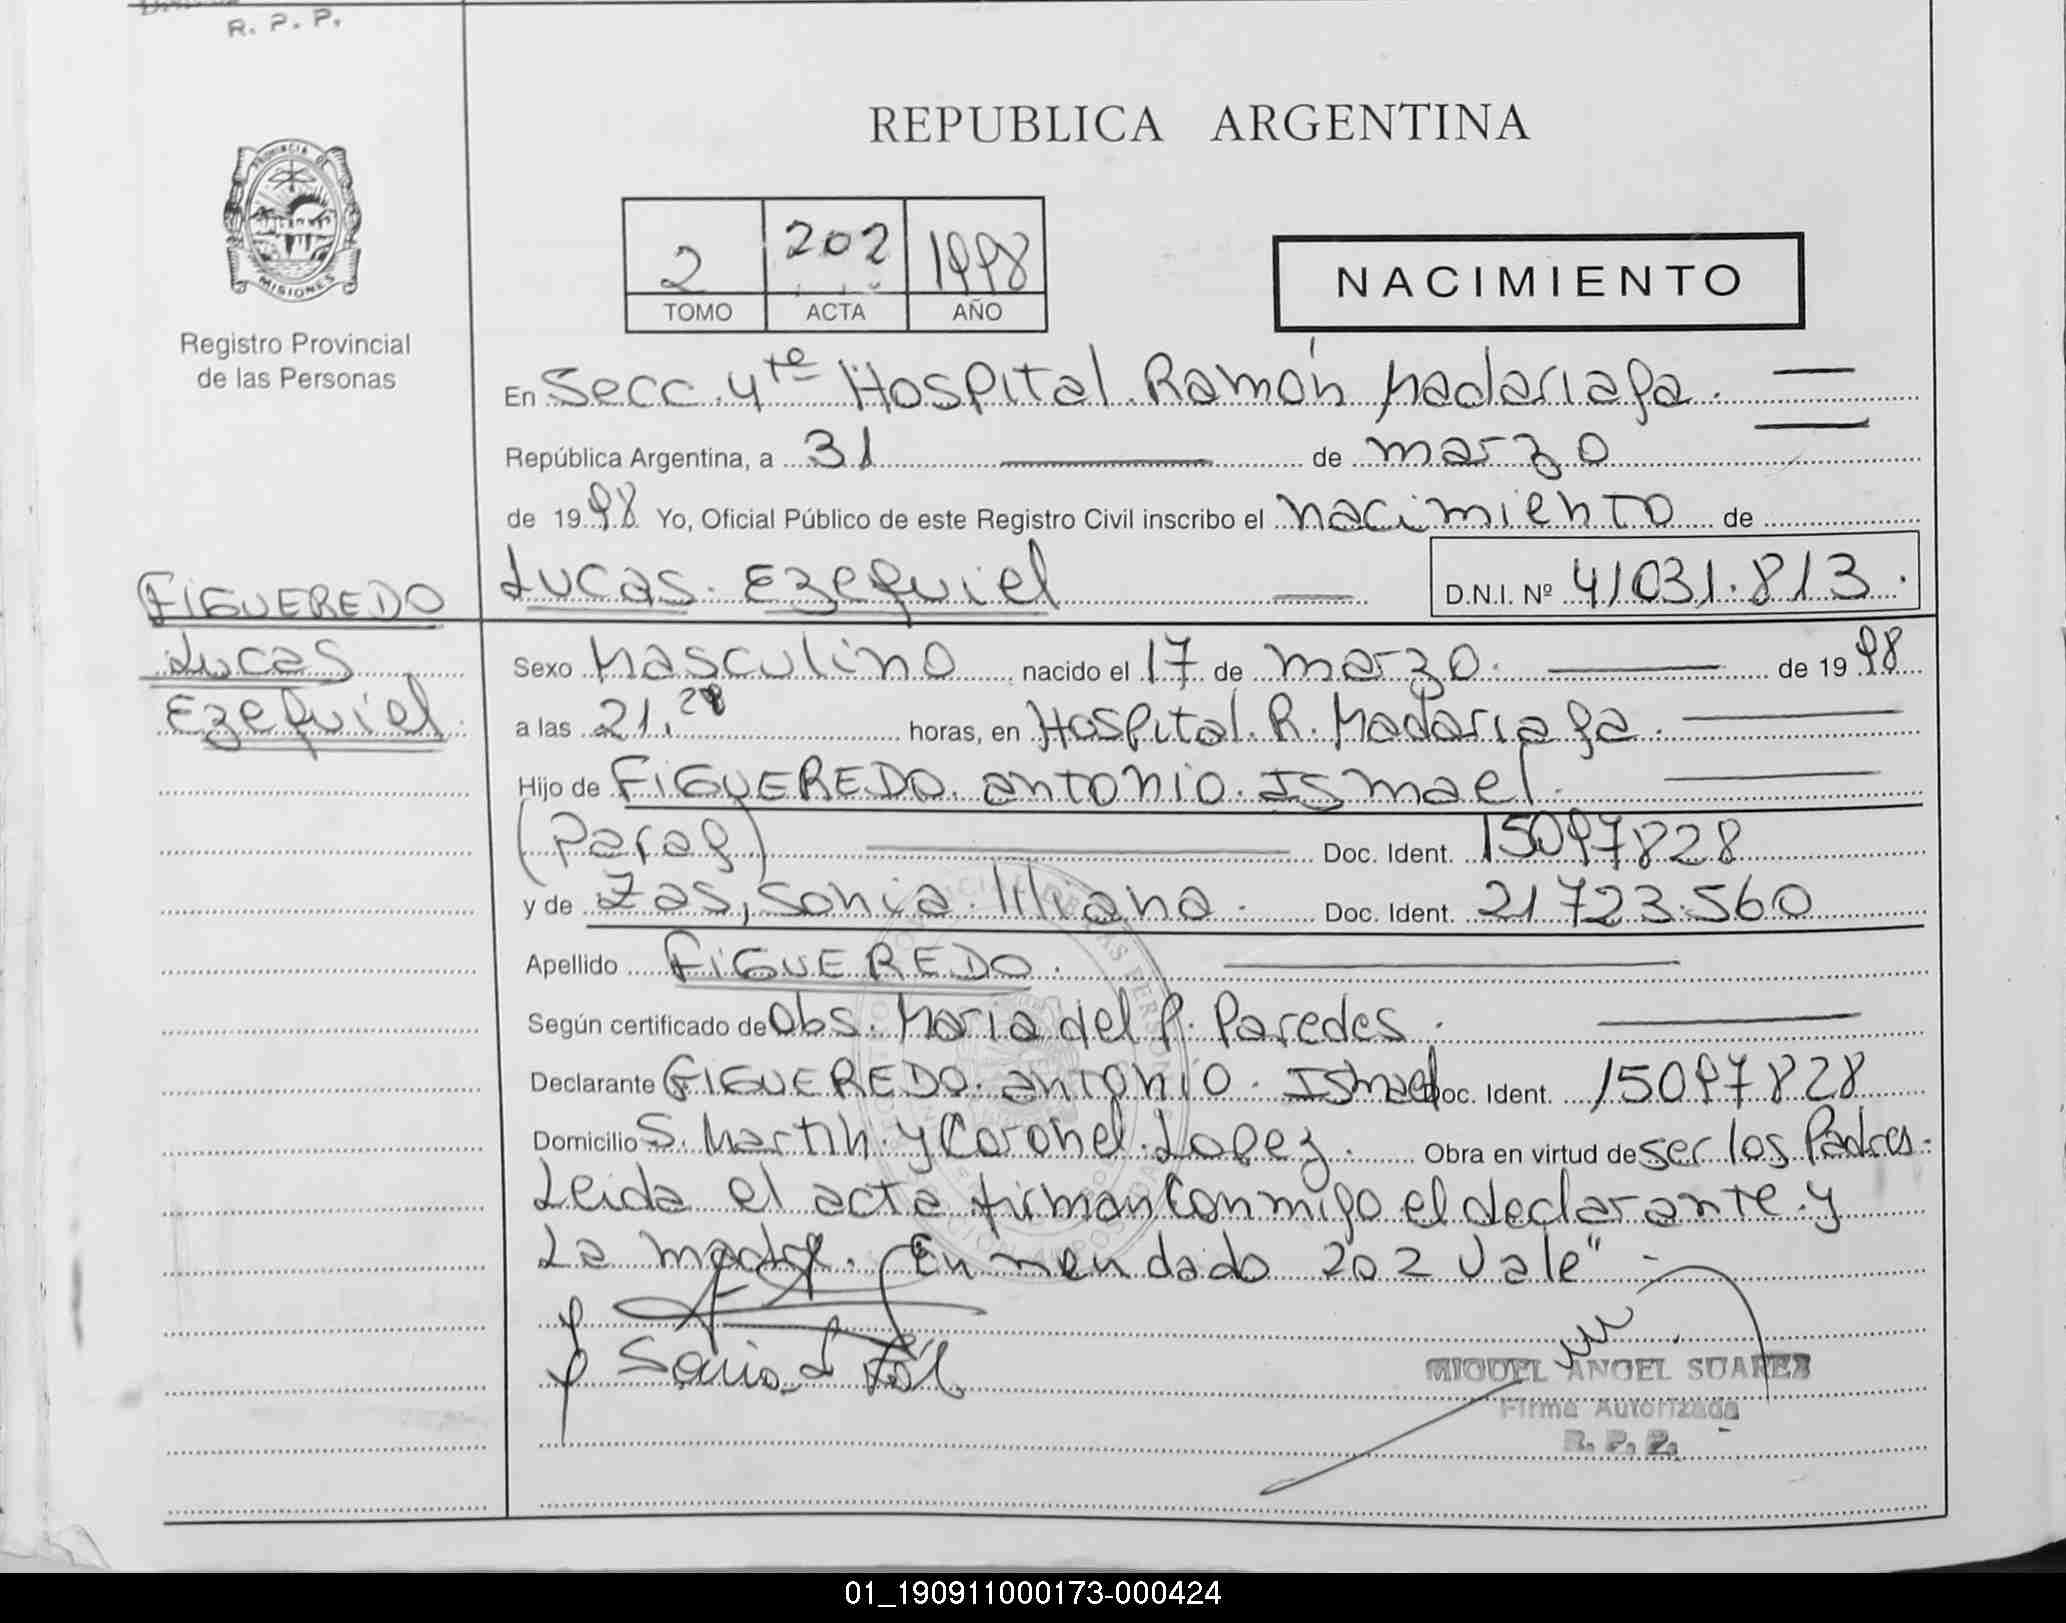 R. P. P.
REPUBLICA ARGENTINA
PROVINCIA DE
MISIONES
Registro Provincial
de las Personas
2 202 1998
TOMO ACTA AÑO
NACIMIENTO
En Secc. 4ta Hospital Ramón Madariaga.
República Argentina, a 31 de marzo
de 1998 Yo, Oficial Público de este Registro Civil inscribo el nacimiento de
Lucas Ezequiel D.N.I. Nº 41031.813.
FIGUEREDO
Lucas
Ezequiel
Sexo Masculino nacido el 17 de marzo. de 1998
a las 21. horas, en Hospital R. Madariaga.
Hijo de FIGUEREDO. antonio. Ismael.
(Parag) Doc. Ident. 15097828
y de Zas, Sonia liliana. Doc. Ident. 21723.560
Apellido FIGUEREDO.
Según certificado de Obs. Maria del P. Paredes.
Declarante FIGUEREDO. antonio. Ismael Doc. Ident. 15097828
Domicilio S. Martin. y Coronel. Lopez. Obra en virtud de ser los Padres.
Leida el acta firman Conmigo el declarante y
La madre. "Enmendado 202 Vale"
Sonia L
MIGUEL ANGEL SUAREZ
Firma Autorizada
R. P. P.
01_190911000173-000424